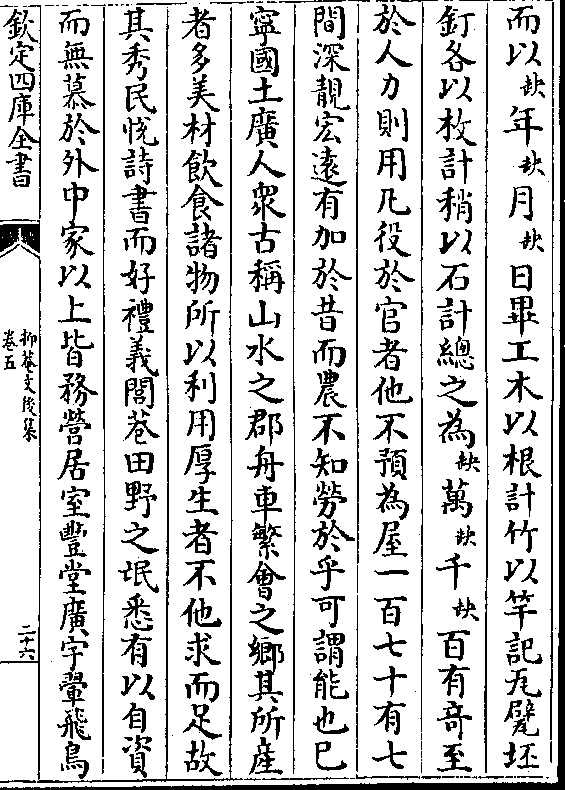 而以缺年缺月缺日畢工木以根計竹以竿記瓦甓坯
釘各以枚計稍以石計總之為缺萬缺千缺百有奇至
於人力則用凡役於官者他不預為屋一百七十有七
間深靚宏遠有加於昔而農不知勞於乎可謂能也已
寧國土廣人衆古稱山水之郡舟車繁會之鄉其所產
者多美材飲食諸物所以利用厚生者不他求而足故
其秀民悅詩書而好禮義閭巷田野之氓悉有以自資
而無慕於外中家以上皆務營居室豐堂廣宇翬飛鳥
欽定四庫全書
抑菴文後集
卷五
二十六